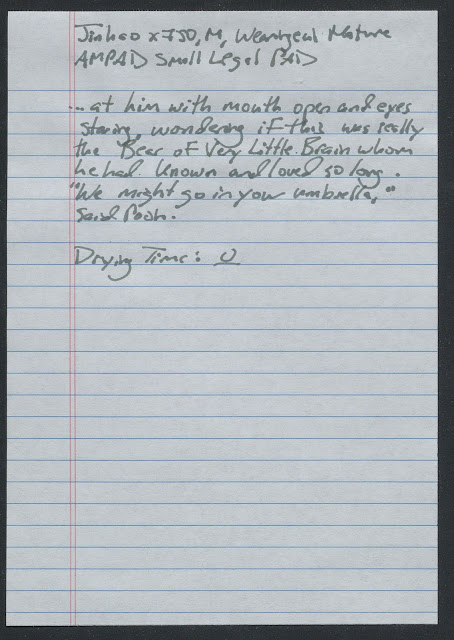 Jinhao x750, M, Wearingeul Mature
AMPAD Small Legal PAD
... at him with mouth open and eyes
staring, wondering if this was really
the Bear of Very Little Brain whom
he had known and loved so long.
"We might go in your umbrella,"
said Pooh.
Drying Time: 0